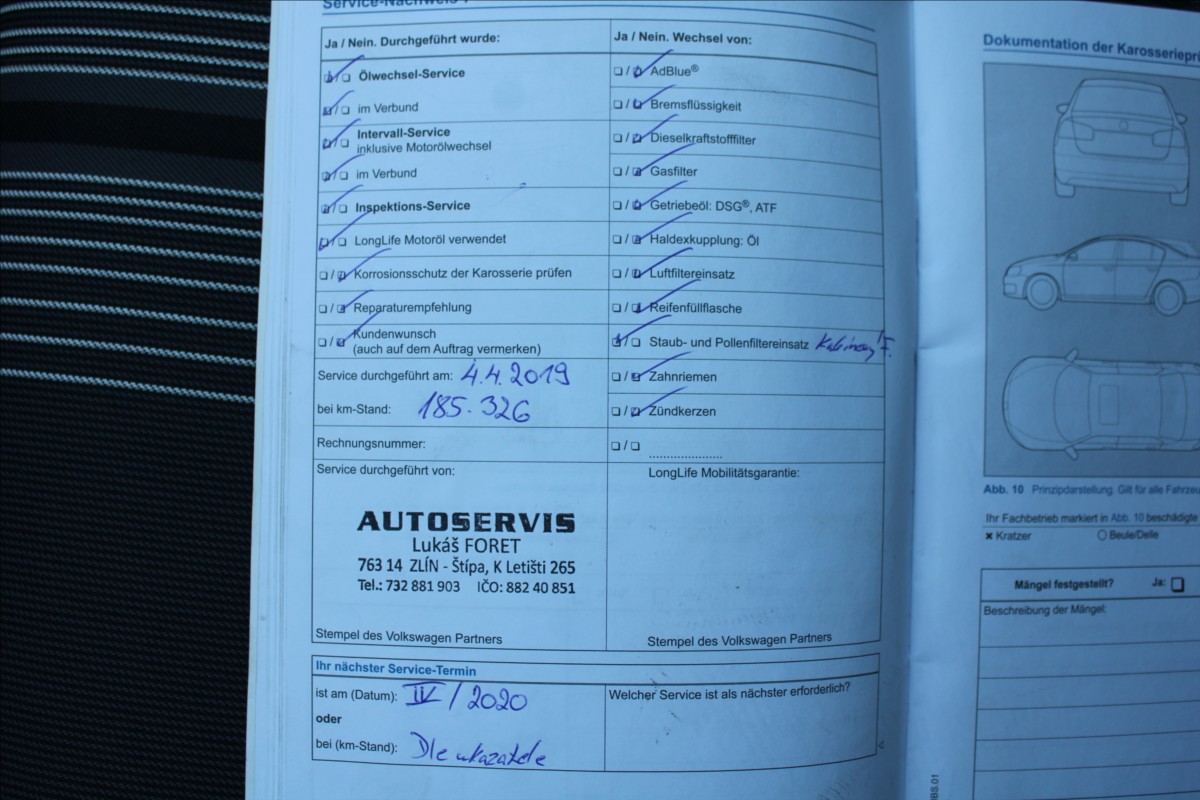 Service-Nachweis
Ja / Nein. Durchgeführt wurde:
Ölwechsel-Service
im Verbund
Intervall-Service
inklusive Motorölwechsel
im Verbund
Inspektions-Service
LongLife Motoröl verwendet
Korrosionsschutz der Karosserie prüfen
Reparaturempfehlung
Kundenwunsch
(auch auf dem Auftrag vermerken)
Service durchgeführt am: 4.4.2019
bei km-Stand: 185.326
Rechnungsnummer:
Service durchgeführt von:
AUTOSERVIS
Lukáš FORET
763 14 ZLÍN - Štípa, K Letišti 265
Tel.: 732 881 903 IČO: 882 40 851
Stempel des Volkswagen Partners
Ja / Nein. Wechsel von:
AdBlue®
Bremsflüssigkeit
Dieselkraftstofffilter
Gasfilter
Getriebeöl: DSG®, ATF
Haldexkupplung: Öl
Luftfiltereinsatz
Reifenfüllflasche
Staub- und Pollenfiltereinsatz
Zahnriemen
Zündkerzen
LongLife Mobilitätsgarantie:
Stempel des Volkswagen Partners
Ihr nächster Service-Termin
ist am (Datum): IV / 2020
oder
bei (km-Stand): Dle ukazatele
Welcher Service ist als nächster erforderlich?
Dokumentation der
Abb. 10 Prinzipdarstellung: Gilt für alle
Ihr Fachbetrieb markiert in Abb. 10 beschädigte
Kratzer
Beule/Delle
Mängel festgestellt? Ja:
Beschreibung der Mängel: